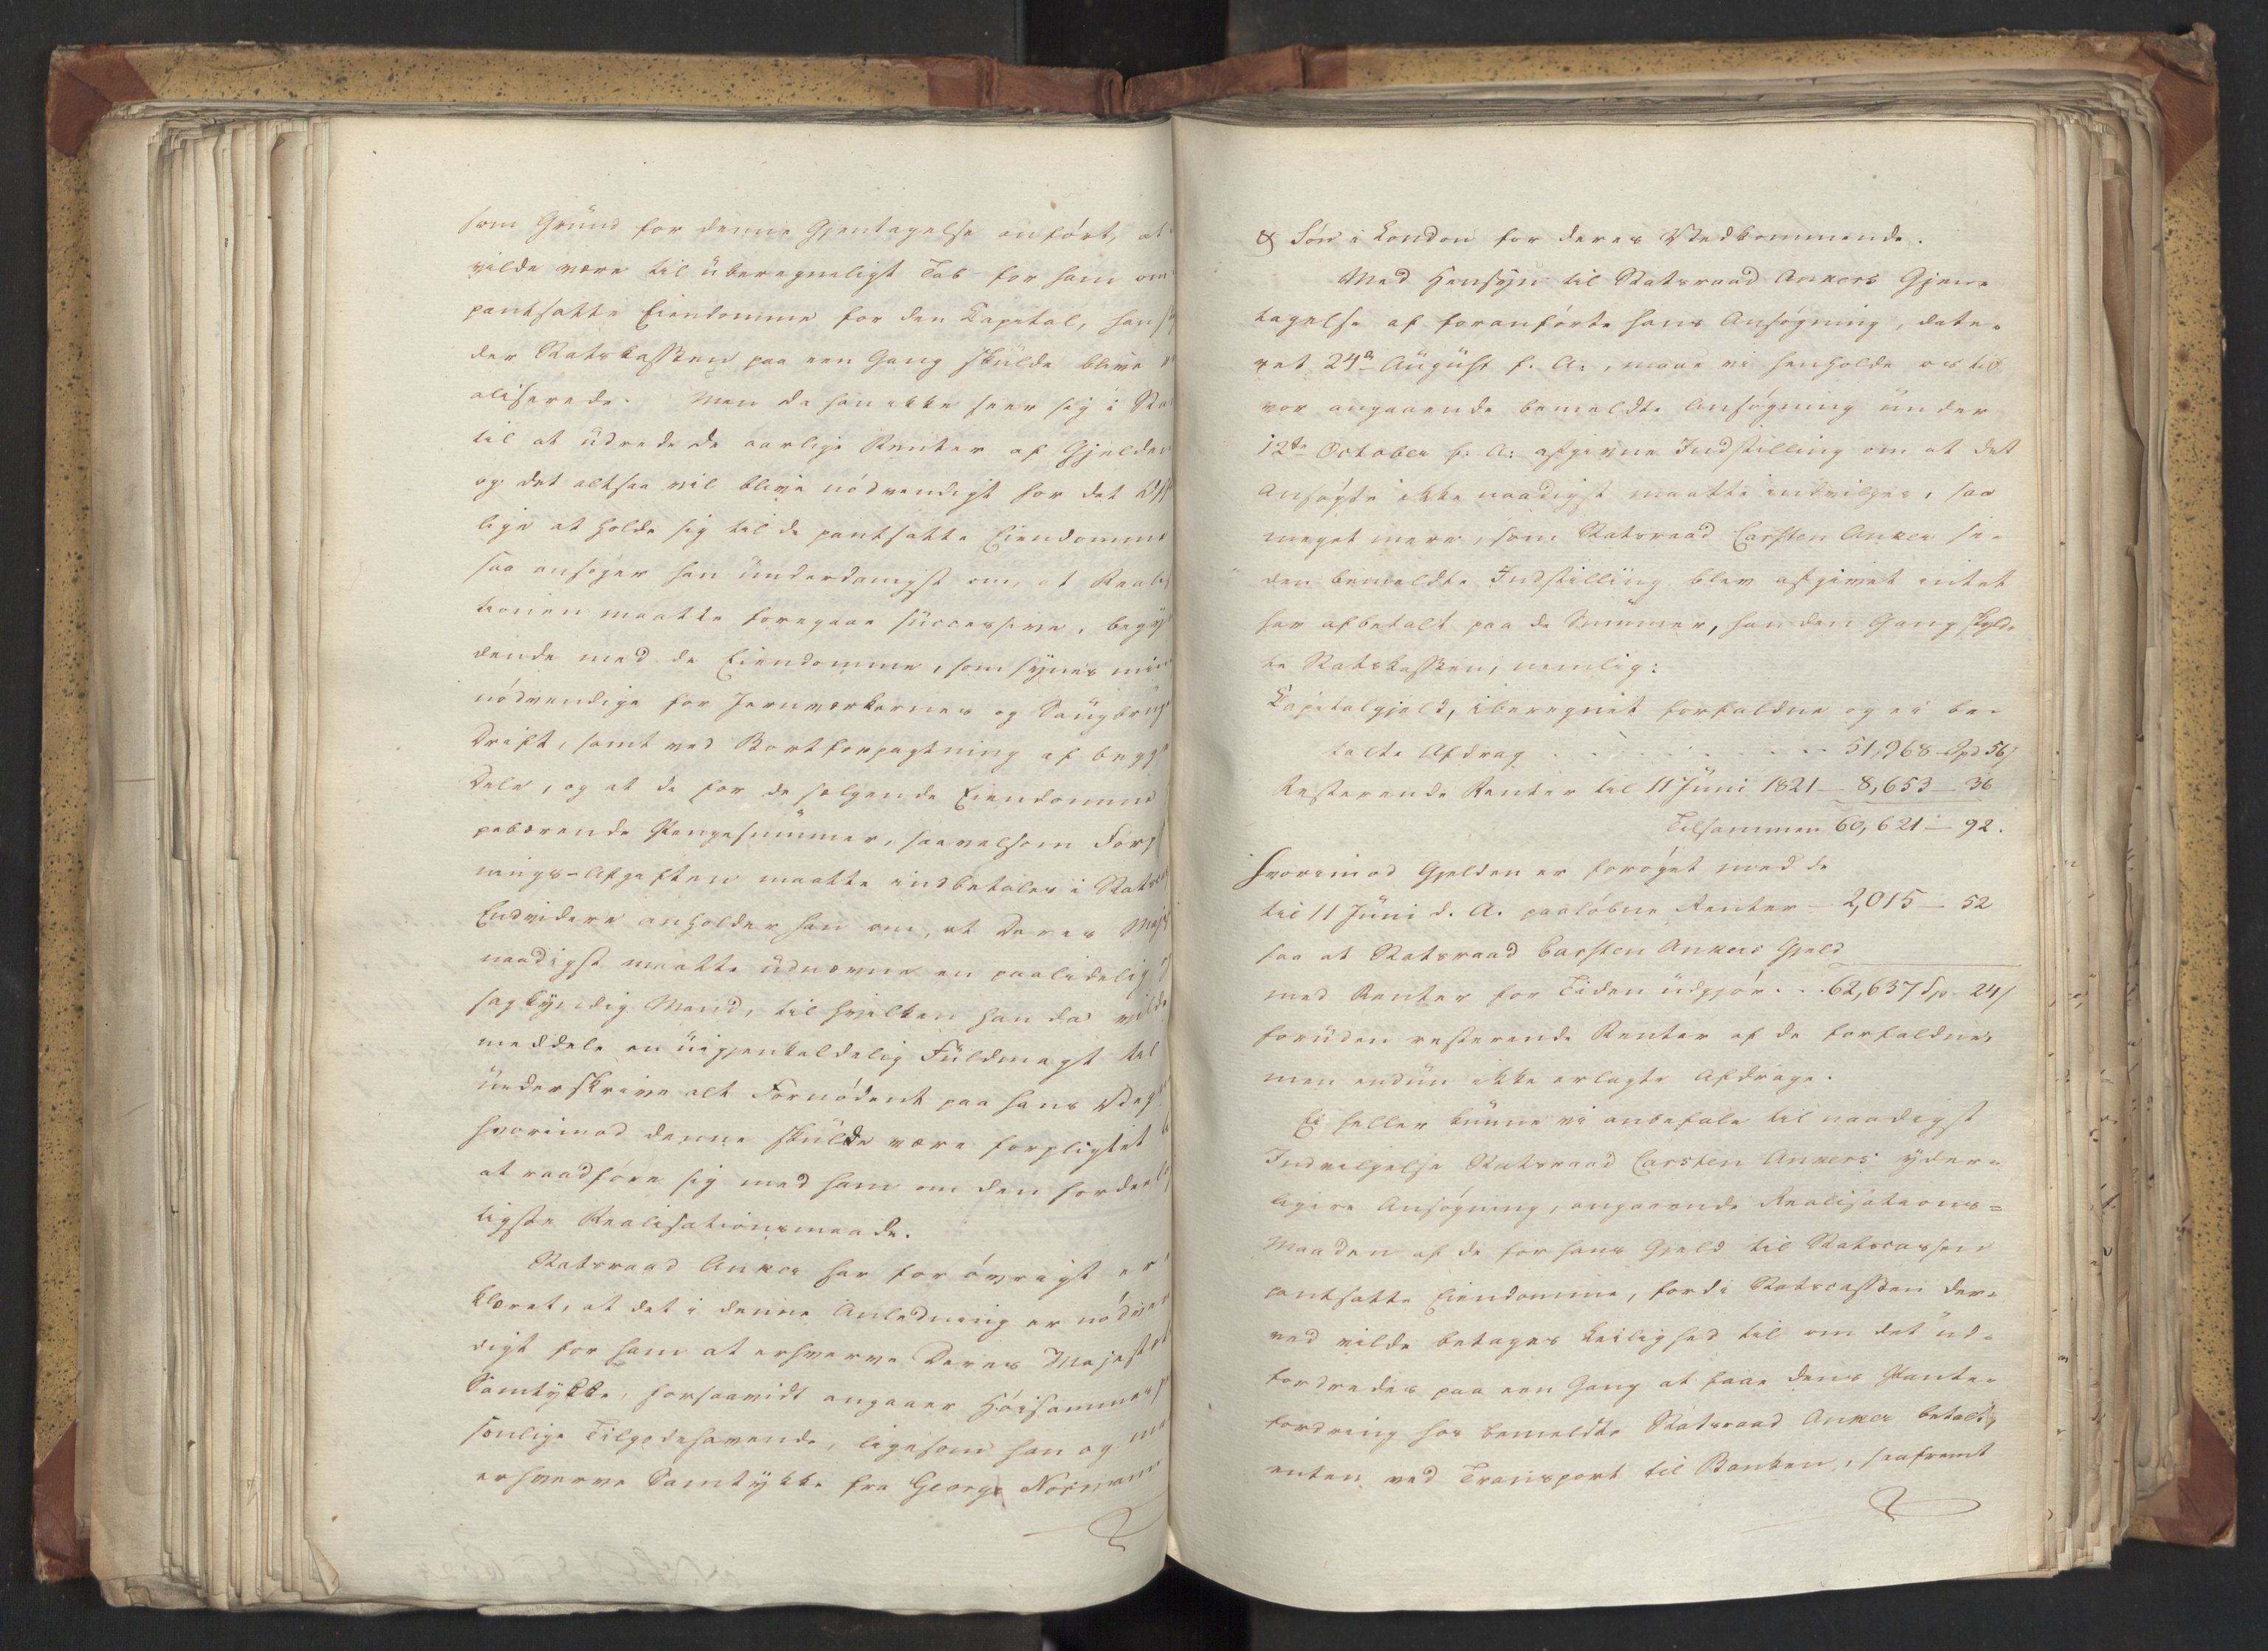 som Grund for denne Gjentagelse anført, at
vilde være til uberegneligt Tab for ham om
pantsatte Eiendomme for den Capital, han
der Statskassen paa een Gang skulde blive
aliserede. Men da han ikke seer sig i
til at udrede de aarlige Renter af Gjelden
og det altsaa vil blive nødvendigt for det
lige at holde sig til de pantsatte Eiendomme
saa ansøger han underdanigst om, at
tionen maatte foregaae successive,
dende med de Eiendomme, som synes
nødvendige for Jernværkernes og
Drift, samt ved Bortforpagtning af begge
Dele, og at de for de sælgende Eiendomme
pebærende Pengesummer, saavelsom
nings-Afgiften maatte indbetales i
Endvidere anholder han om, at Deres
naadigst maatte udnævne en paalidelig
sagkyndig Mand, til hvilken han da vilde
meddele en uigjenkaldelig Fuldmagt til
underskrive alt Fornødent paa hans
hvorimod denne skulde være forpligtet
at raadføre sig med ham om den fordeel
ligste Realisationsmaade.
Statsraad Anker har for øvrigt er
klæret, at det i denne Anledning er
digt for ham at erhverve Deres Majestæt
Samtykke, forsaavidt angaaer Høisammes
sonlige Tilgodehavende, ligesom han og
erhverve Samtykke fra George Norman
& Søn i London for deres Vedkommende.
Med Hensyn til Statsraad Ankers Gjen-
tagelse af foranførte hans Ansøgning, date-
ret 24de August f. A:, maae vi henholde os til
vor angaaende bemeldte Ansøgning under
12te October f: A: afgivne Indstilling om at det
Ansøgte ikke naadigst maatte indvilges, saa
meget mere, som Statsraad Carsten Anker si-
den bemeldte Indstilling blev afgivet intet
har afbetalt paa de Summer, han den Gang skyld-
te Statskassen, nemlig:
Capitalgjeld, iberegnet forfaldne og ei be-
talte Afdrag . . . . . . . 51,968 Spd 56 s
Resterende Renter til 11 Juni 1821 — 8,653 — 36
Tilsammen 60,621 — 92.
hvorimod Gjelden er forøget med de
til 11 Juni d. A. paaløbne Renter — 2,015 — 52
saa at Statsraad Carsten Ankers Gjeld
med Renter for Tiden udgjør . . 62,637 Sp 24 s
foruden resterende Renter af de forfaldne,
men endnu ikke erlagte Afdrage.
Ei heller kunne vi anbefale til naadigst
Indvilgelse Statsraad Carsten Ankers yder-
ligere Ansøgning, angaaende Realisations=
Maaden af de for hans Gjeld til Statscassen
pantsatte Eiendomme, fordi Statscassen der-
ved vilde betages Leilighed til om det ud-
fordredes paa een Gang at faae dens Pante-
fordring hos bemeldte Statsraad Anker betalt,
enten ved Transport til Banken, saafremt